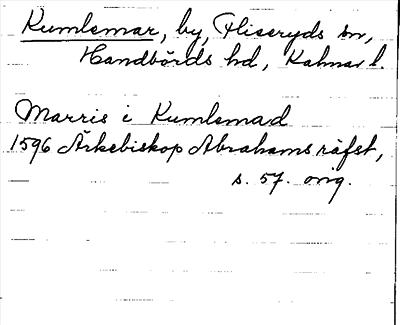 Kumlemar, by, Fliseryds sn,
Handbörds hd, Kalmar l.
Marris i Kumlemad
1596 Ärkebiskop Abrahams räfst,
s. 57. orig.